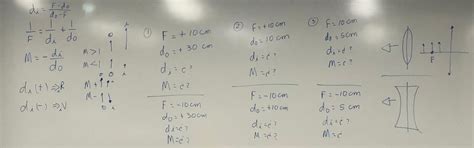 di = F·do / do-F
1/F = 1/di + 1/do
M = - di/do
di (+) ⇒ R
di (-) ⇒ V
M>1
M<1
M+
M-
①
F = +10cm
do = +30cm
di = ¿?
M = ¿?
F = -10cm
do = +30cm
di = ¿?
M = ¿?
②
F = +10cm
do = 10cm
di = ¿?
M = ¿?
F = -10cm
do = +10cm
di = ¿?
M = ¿?
③
F = +10cm
do = 5cm
di = ¿?
M = ¿?
F = -10cm
do = 5cm
di = ¿?
M = ¿
F